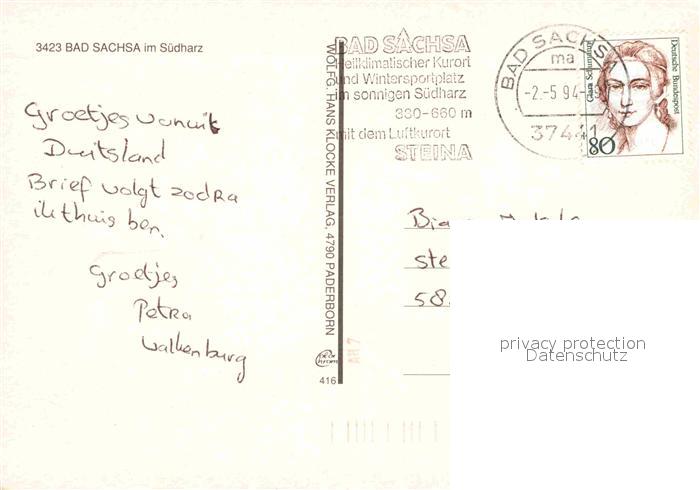 3423 BAD SACHSA im Südharz
Groetjes vanuit
Duitsland
Brief volgt zodra
ik thuis ben.
Groetjes
Petra
Walkenburg
WOLFG. HANS KLOCKE VERLAG, 4790 PADERBORN
416
BAD SACHSA
Heilklimatischer Kurort
und Wintersportplatz
im sonnigen Südharz
330-660 m
mit dem Luftkurort
STEINA
BAD SACHSA
ma
-2.-5.94-
37441
Deutsche Bundespost
Clara Schumann
80
ste
58
privacy protection
Datenschutz